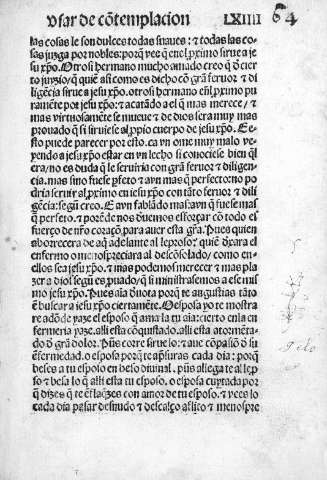 vsar de cõtemplacion LXIIII 64
las cosas le son dulces todas suaues: ⁊ todas las co-
sas juzga por nobles: porq̃ vee q̃ en el ꝓximo sirue a je
su xp̃o. Otrosi hermano mucho amado creo q̃ ð cier
to juyzio/ q̃ quiẽ assi como es dicho cõ grã feruor ⁊ di
ligẽcia sirue a jesu xp̃o. otrosi hermano en el ꝓximo pu
ramẽte por jesu xp̃o: ⁊ acatãdo a el q̃ mas merece/ ⁊
mas virtuosamẽte se mueue ⁊ de dios sera muy mas
prouado q̃ si siruiese al ꝓpio cuerpo de jesu xp̃o. E e-
sto puede parecer por esto. ca vn ome muy malo ve-
yendo a jesu xp̃o estar en vn lecho si conociese bien q̃ el
era/ no es duda q̃ le seruiria con grã feruor ⁊ diligen-
cia. mas sino fuese ꝑfeto ⁊ avn mas q̃ perfecto no po
dria seruir al ꝓximo en jesu xp̃o con tãto feruor ⁊ dili
gẽcia: segũ creo. E avn fablãdo mas: avn q̃ fuese mas
q̃ perfeto. ⁊ porẽde nos deuemos esforçar cõ todo el
fuerço de nr̃o coraçõ para auer esta grã. Pues quien
aborrecera de aq̃ adelante al leproso: quiẽ dexara el
enfermo o menospreciara al descõsolado/ como en-
ellos sea jesu xp̃o. ⁊ mas podemos merecer ⁊ mas pla
zer a dios segũ es ꝓuado/ q̃ si ministrasemos a ese mis
mo jesu xp̃o. Pues aĩa deuota porq̃ te angustias tãto
ẽ buscar a jesu xp̃o ciertamẽte. Pues yo te mostra
re adõde yaze el esposo q̃ ama la tu aĩa: cierto en la en
fermeria yaze. alli esta cõquistado. alli esta atormẽta-
do ð grã dolor. Pues corre sirue lo: ⁊ aue cõpasiõ ð su
ẽfermedad. o esposa porq̃ te apresuras cada dia: porq̃
beses a tu esposo en beso diuinal. pues allega te al lep
so ⁊ besa lo q̃ alli esta tu esposo. o esposa cuytada por
q̃ dizes q̃ te ẽflaq̃zes con amor de tu esposo. ⁊ vees lo
cada dia pasar desnudo ⁊ descalço aflito ⁊ menospre